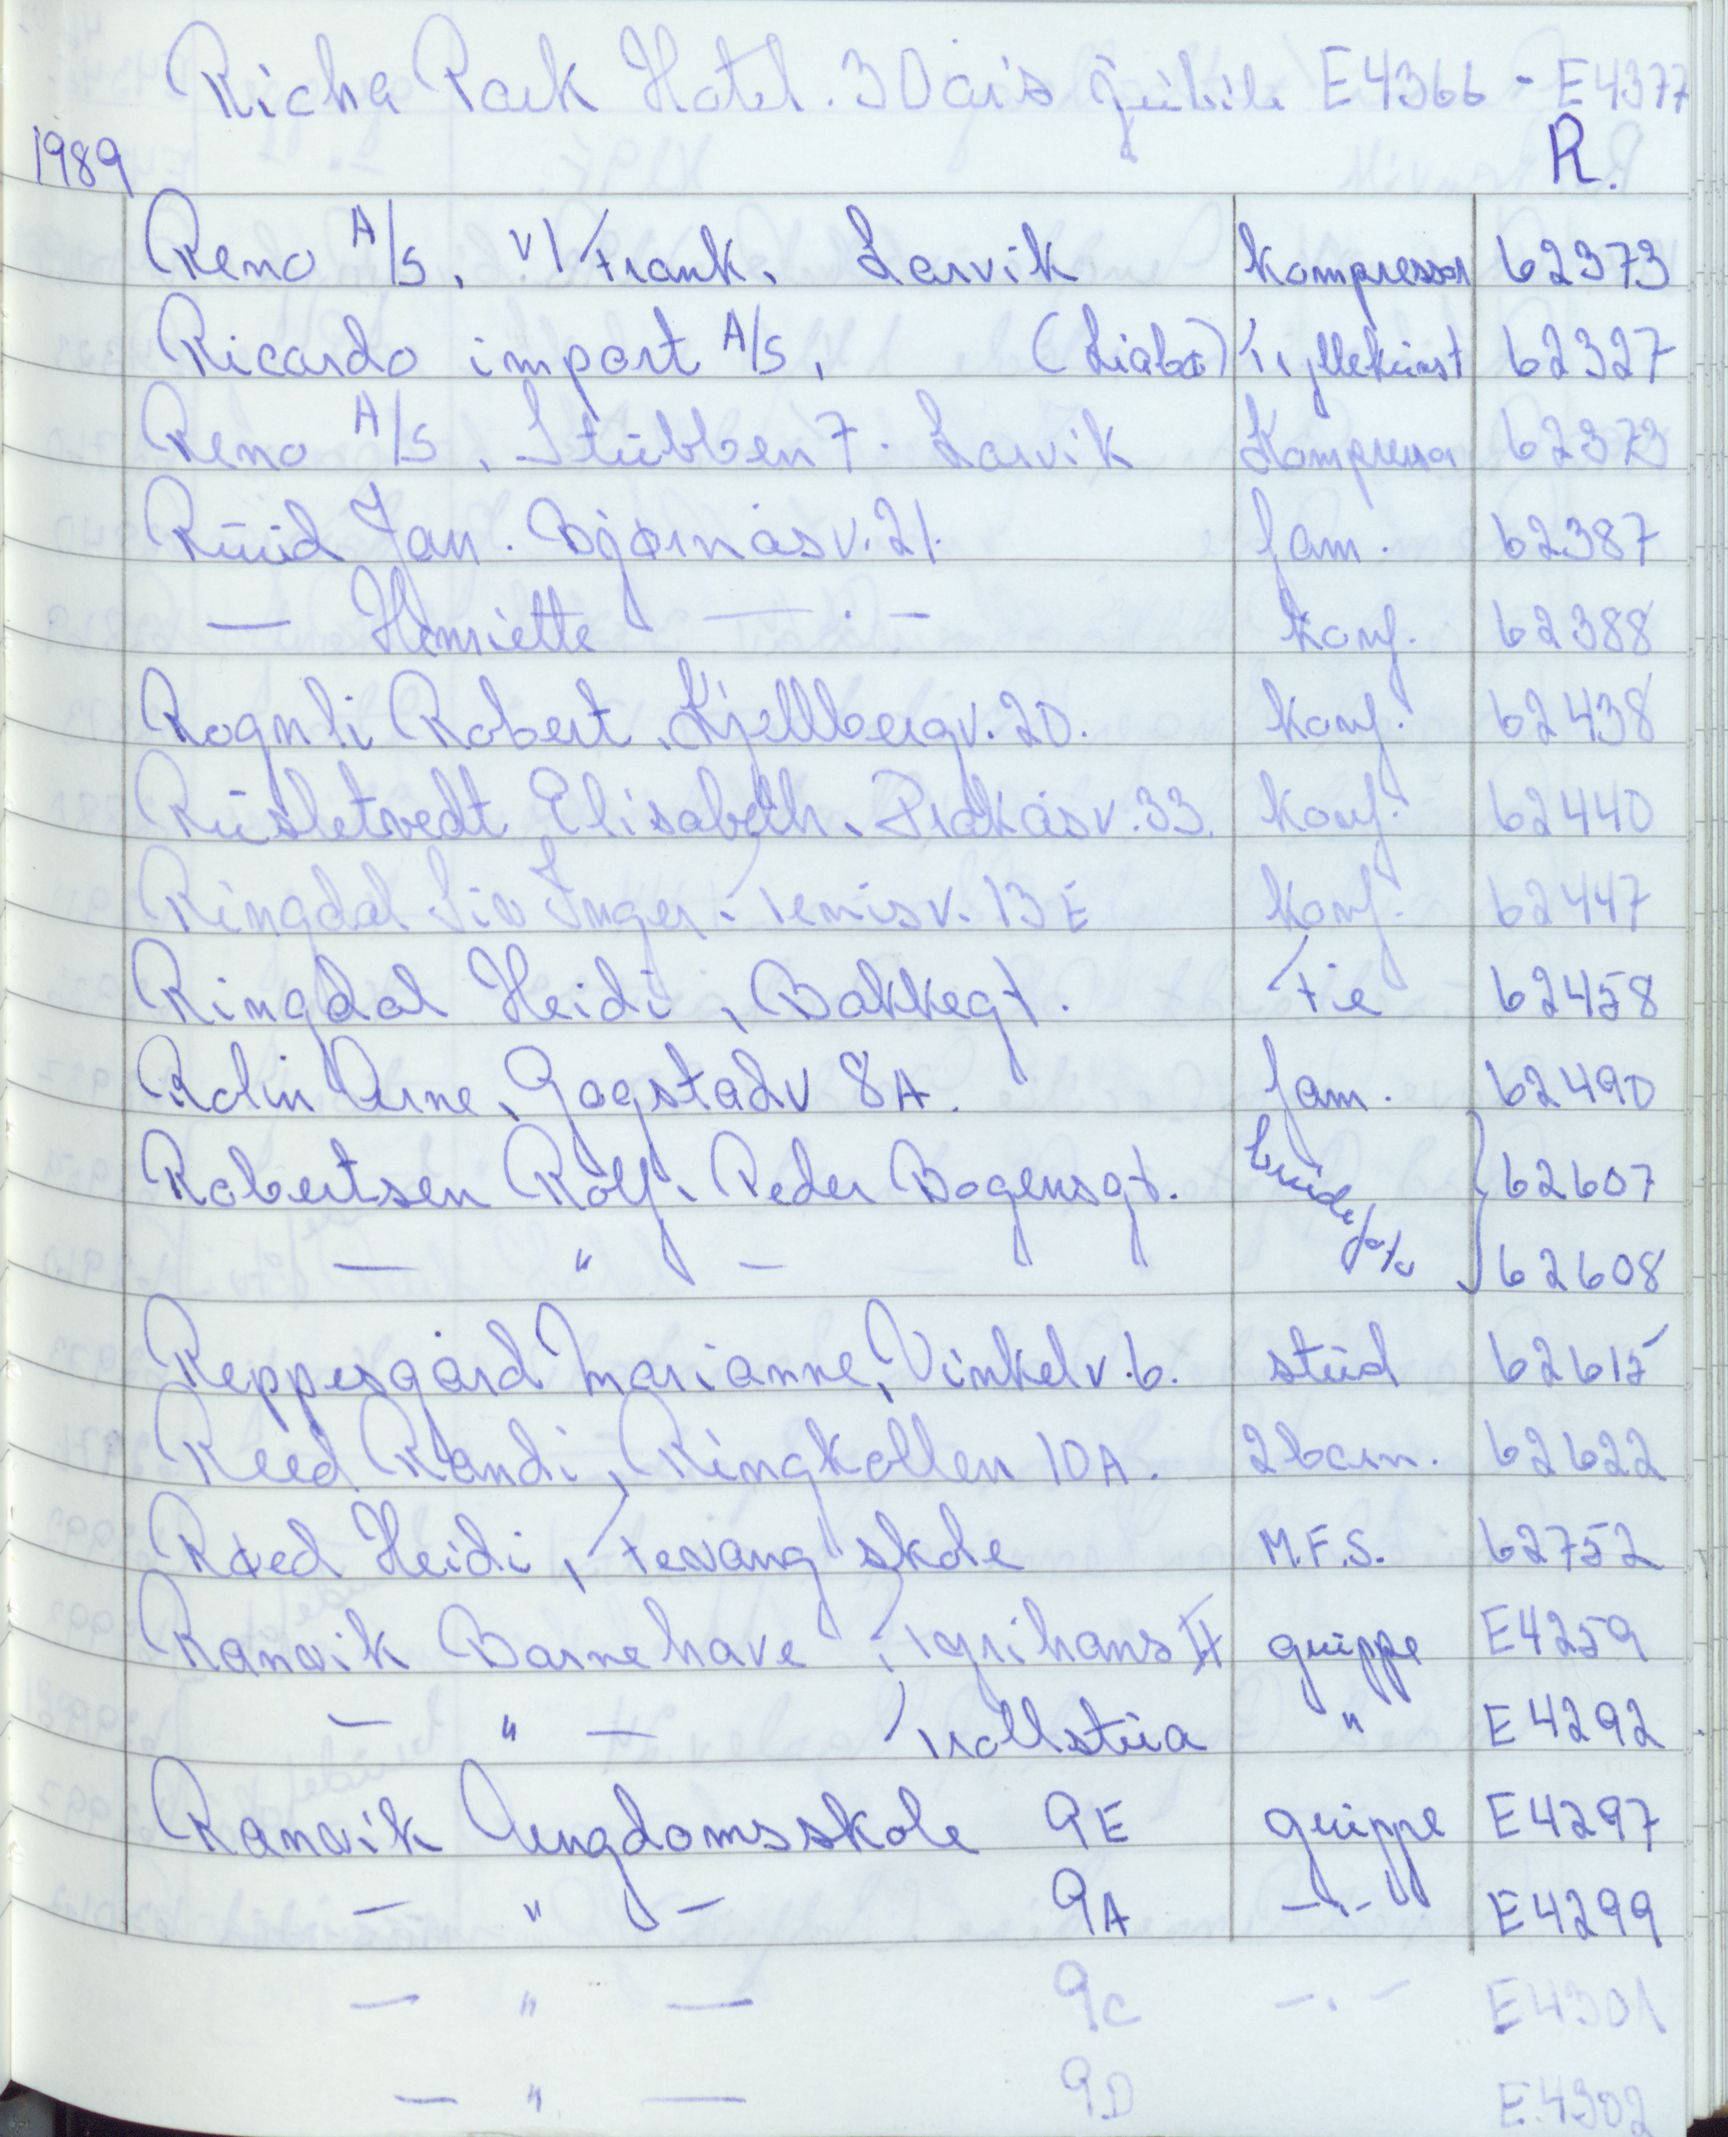 Richa Park Hotel. 30 års jubile E4366 - E4377
1989 R.
Reno A/S, v/ Frank, Larvik kompressor 62373
Ricardo import A/S, (Liabø) Tryllekunst 62327
Reno A/S, Stubben 7. Larvik Kompressor 62373
Ruud Jan. Bjørnåsv. 21. fam. 62387
— Henriette — . — konf. 62388
Rognli Robert, Kjellbergv. 20. konf. 62438
Elisabeth, v. 33. konf. 62440
Ringdal Siv Inger, v. 13 E konf. 62447
Ringdal Heidi, Bakkegt. Fie 62458
Arne, Gogstadv 8A. fam. 62490
Robertsen Rolf, Peder Bogensgt. brude 62607
— " — 62608
Reppesgård Marianne, Vinkelv. 6. stud 62615
Reed Randi, Ringkollen 10A. 2 barn. 62622
Røed Heidi, Fevang skole M.F.S. 62752
Ranvik Barnehave, Tyrihans II gruppe E4259
— " — Trollstua " E4292
Ranvik Ungdomsskole 9E gruppe E4297
— " — 9A — . — E4299
— " — 9C — . — E4301
— " — 9D E4302